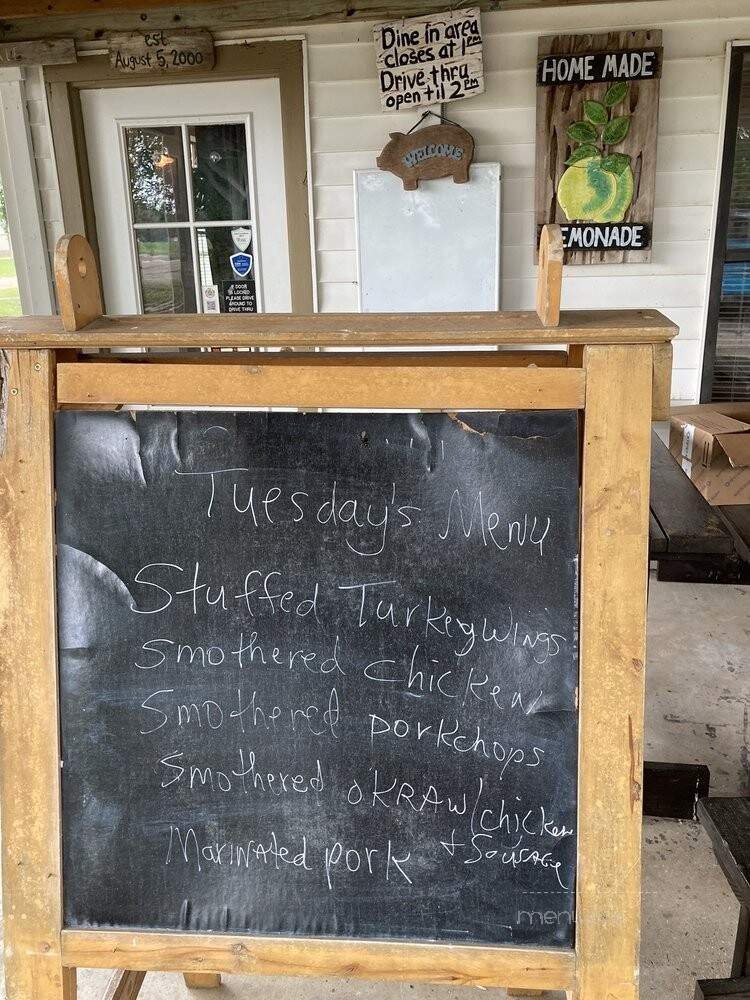 est.
August 5, 2000
Dine in area
closes at 1PM
Drive thru
open til 2PM
WELCOME
HOME MADE
LEMONADE
IS LOCKED
PLEASE DRIVE
AROUND TO
DRIVE THRU
Tuesday's Menu
Stuffed Turkey Wings
Smothered Chicken
Smothered porkchops
Smothered OKRA w/chicken
+ Sausage
Marinated pork
menu